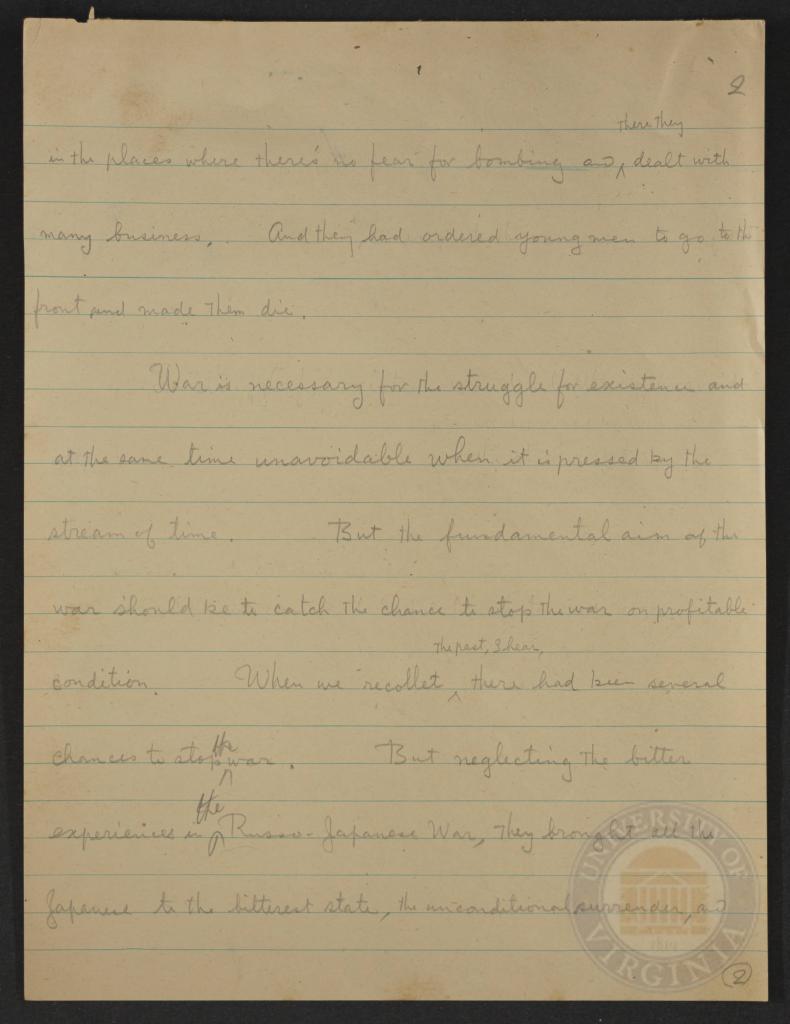 2
there they
in the places where there's no fear for bombing and dealt with
many business. And they had ordered young men to go to the
front and made them die.
War is necessary for the struggle for existence and
at the same time unavoidable when it is pressed by the
stream of time. But the fundamental aim of the
war should be to catch the chance to stop the war on profitable
condition. When we recollet there had been several
the past, I hear,
chances to stop the war. But neglecting the bitter
experiences in the Russo-Japanese War, they brought all the
Japanese to the bitterest state, the unconditional surrender, and
2
UNIVERSITY OF VIRGINIA
1819